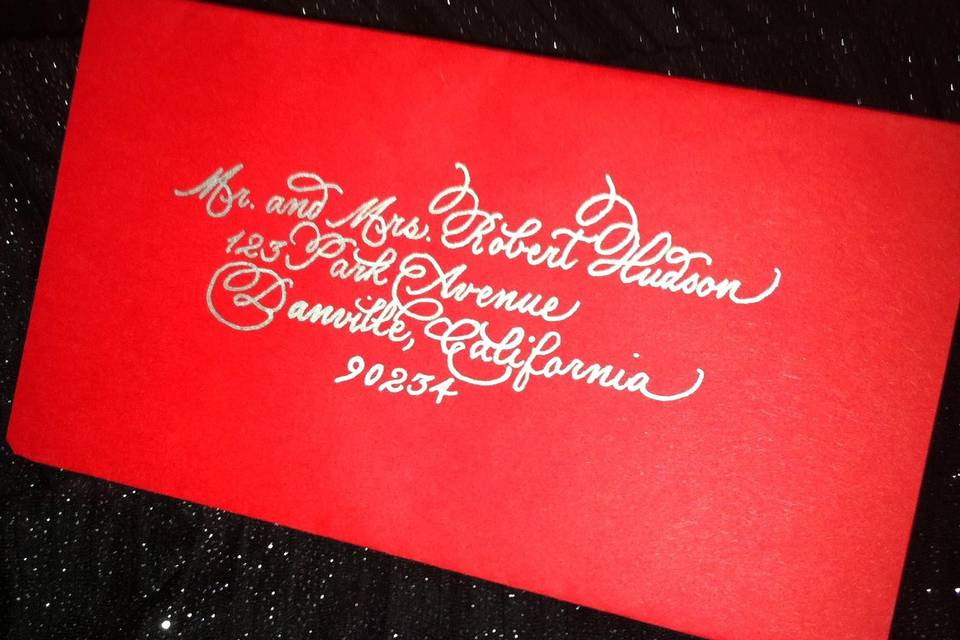 Mr. and Mrs. Robert Hudson
123 Park Avenue
Danville, California
90234